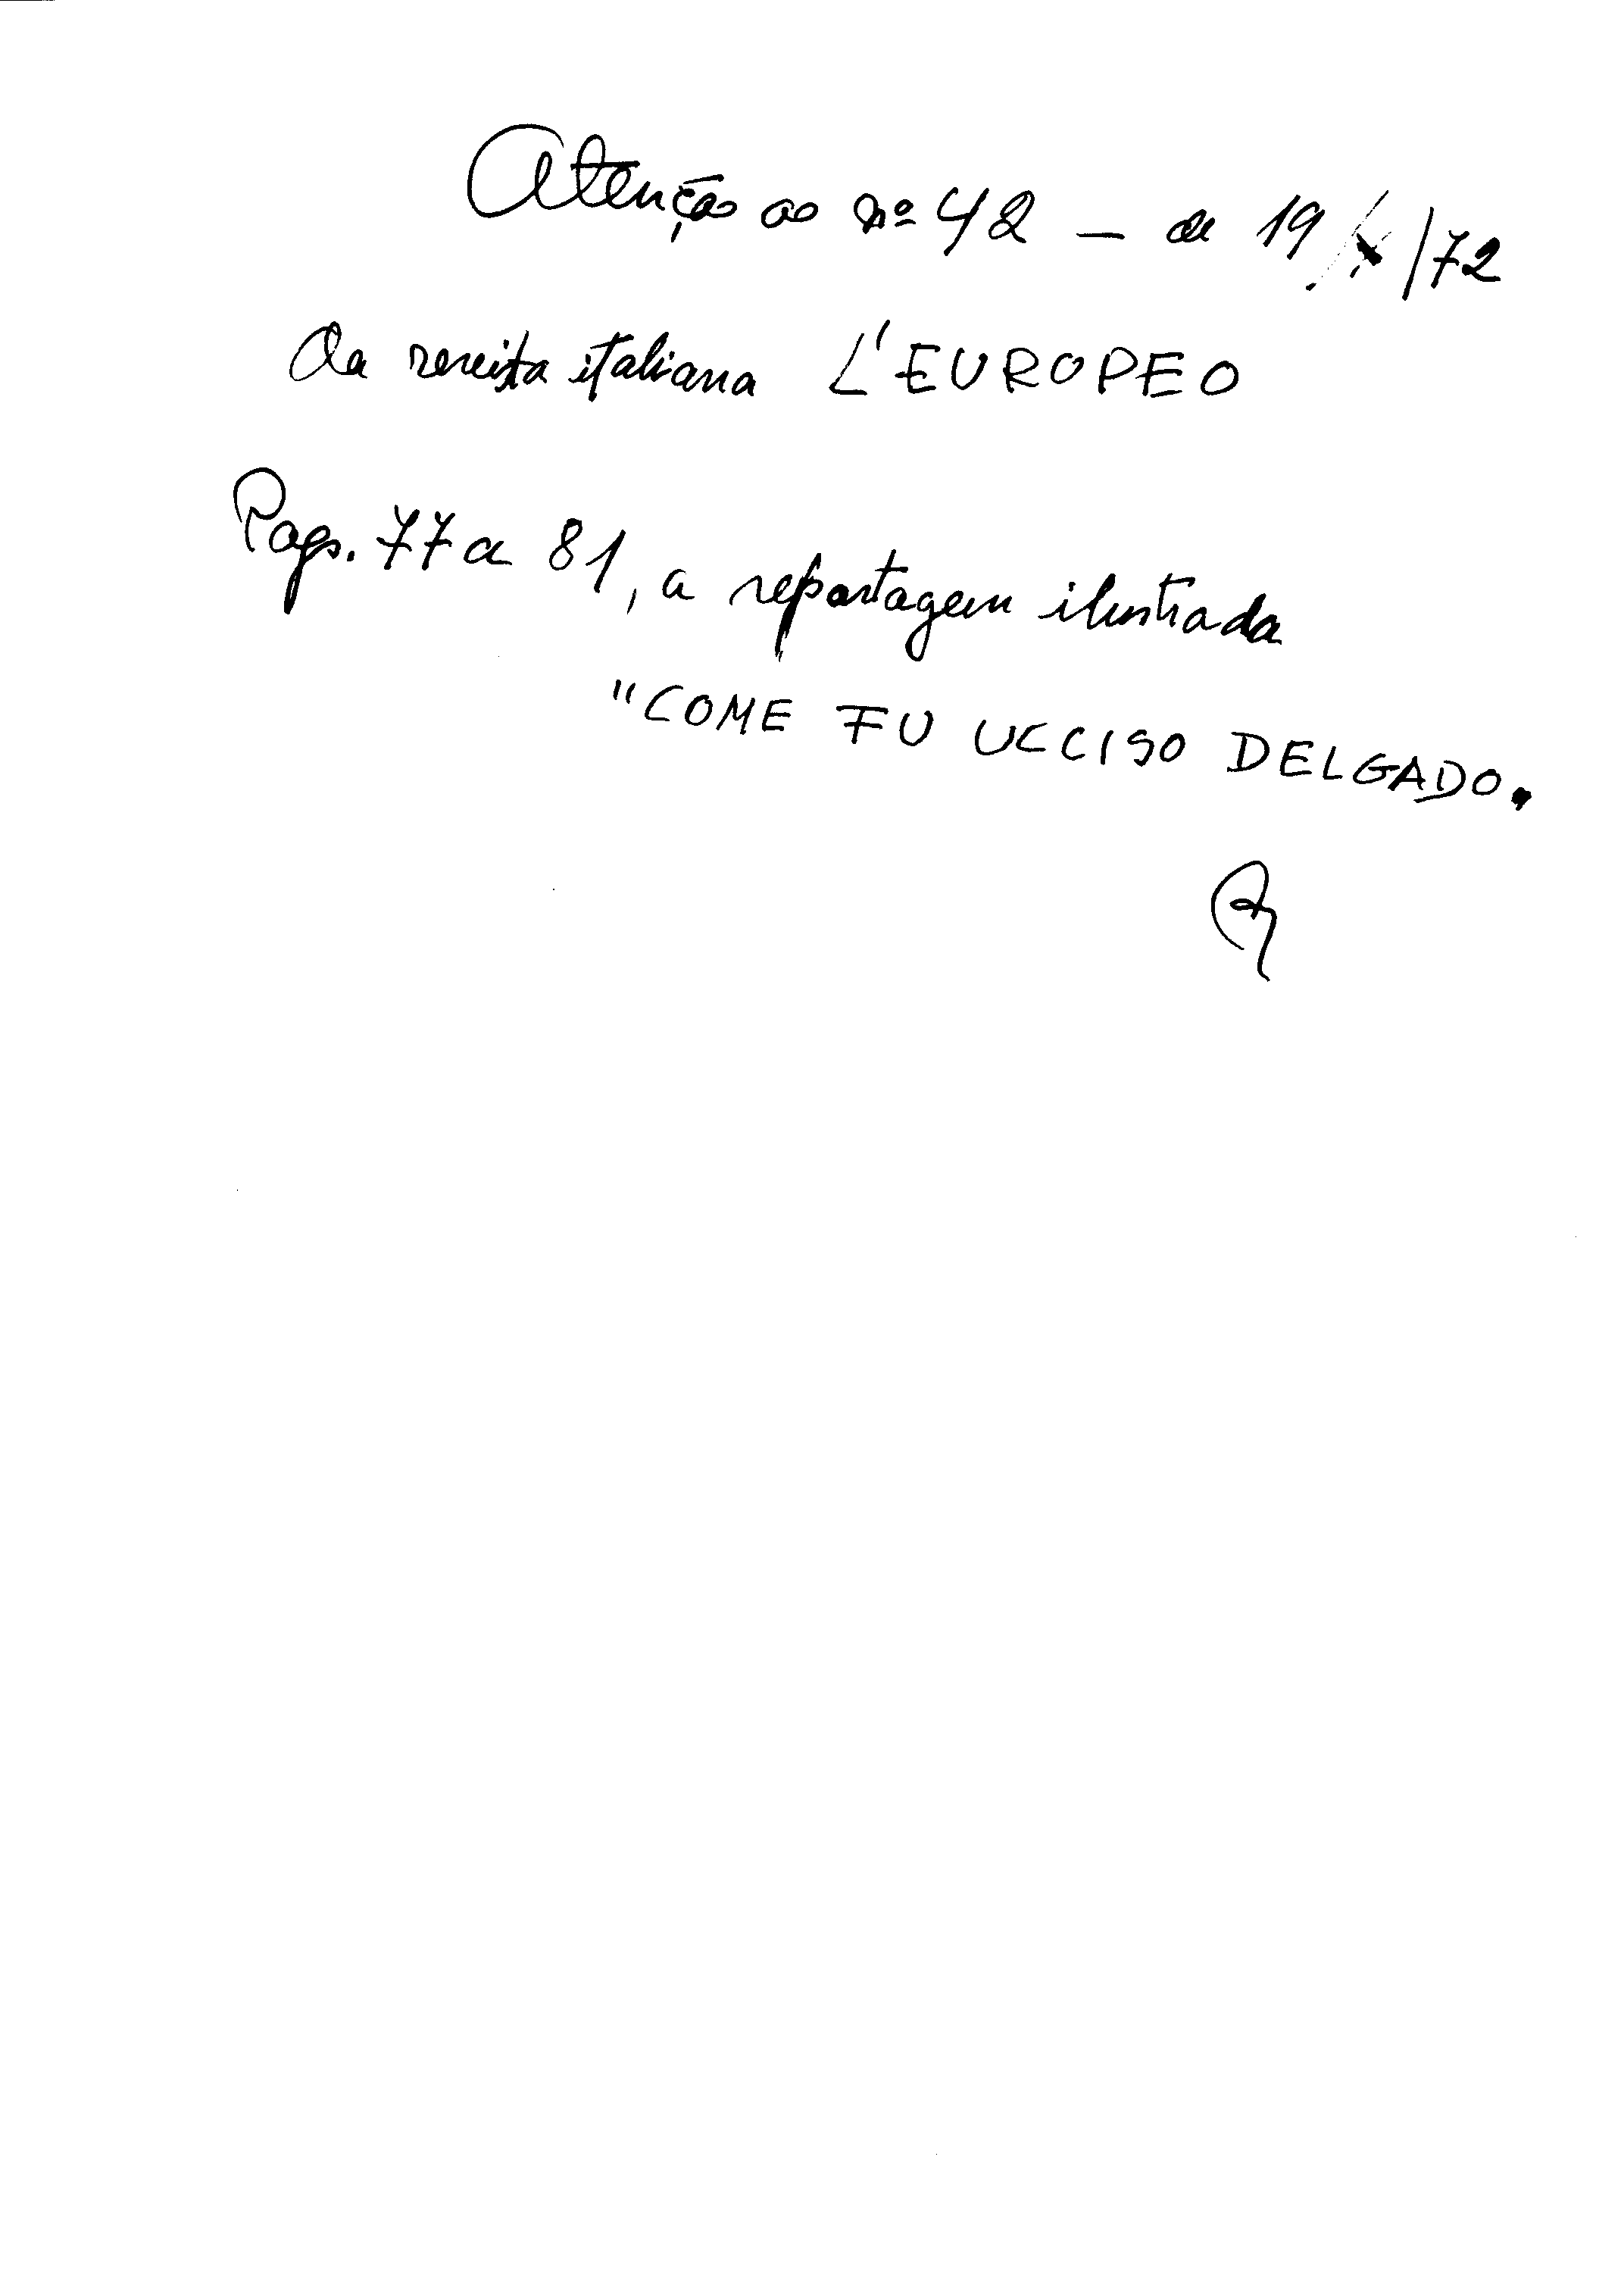 Atenção ao nº 42 — de 19/X/72
da revista italiana L'EUROPEO
Pags. 77 a 81, a reportagem ilustrada
"COME FU UCCISO DELGADO.